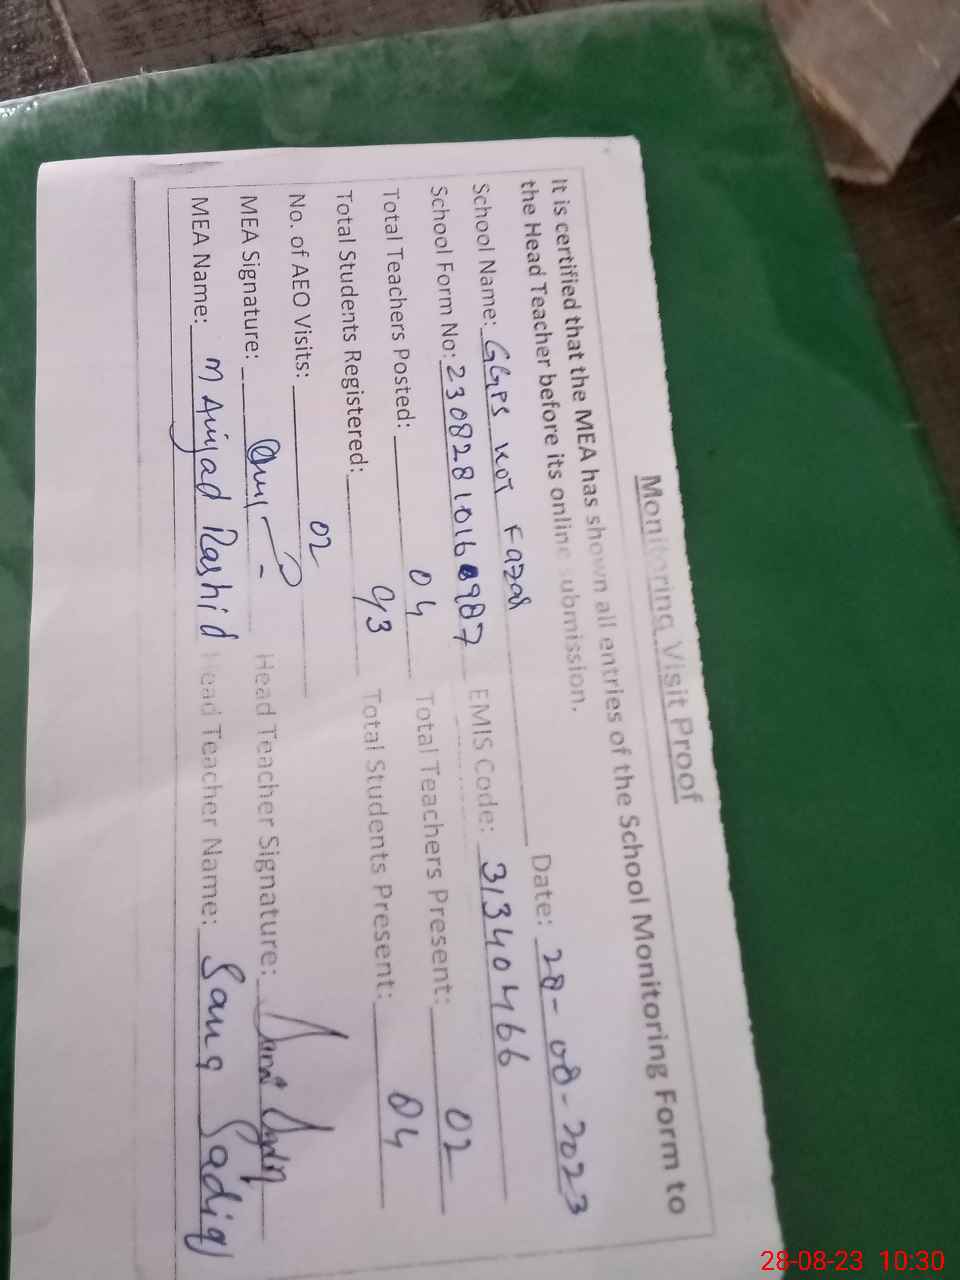 Monitoring Visit Proof
It is certified that the MEA has shown all entries of the School Monitoring Form to
the Head Teacher before its online submission.
School Name: GGPS KOT Fazal Date: 28-08-2023
School Form No: EMIS Code: 31340466
Total Teachers Posted: 04 Total Teachers Present: 02
Total Students Registered: 43 Total Students Present: 04
No. of AEO Visits: 02
MEA Signature: Head Teacher Signature:
MEA Name: M Amjad Rashid Head Teacher Name: Sana Sadiq
28-08-23 10:30